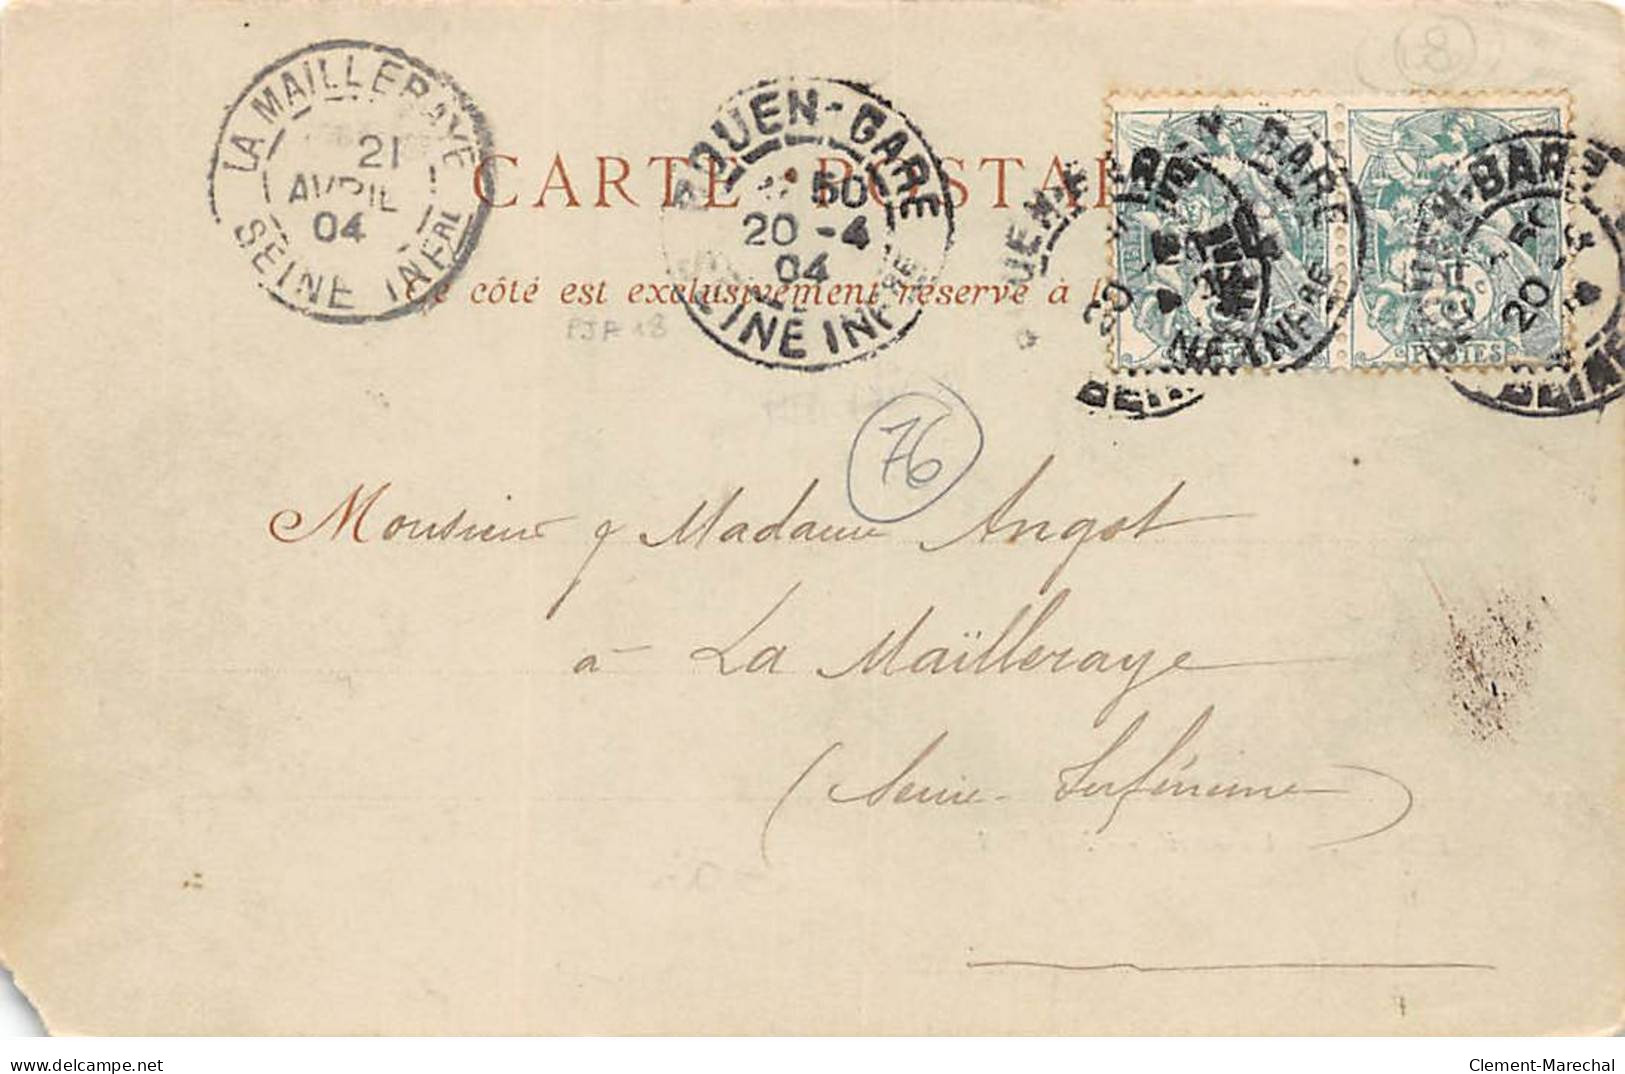 8
LA MAILLERAYE
21
AVRIL
04
SEINE INFRE
ROUEN-GARE
50
20 -4
04
SEINE INFRE
CARTE POSTALE
Ce côté est exclusivement réservé à l'
PJA 18
5c
POSTES
76
Monsieur & Madame Angot
à La Maïlleraye
(Seine-Inférieure)
delcampe.net
Clement-Marechal